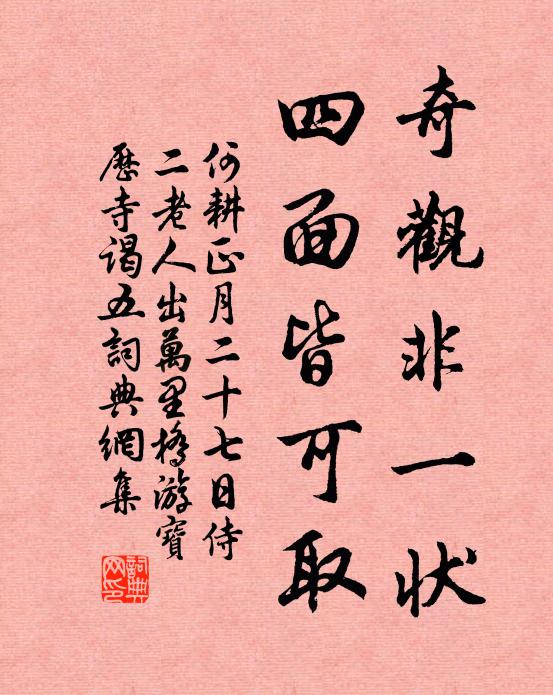 奇觀非一狀
四面皆可取
何耕正月二十七日侍
二老人出萬里橋游寶
歷寺謁五詞典網集
詞典
网印